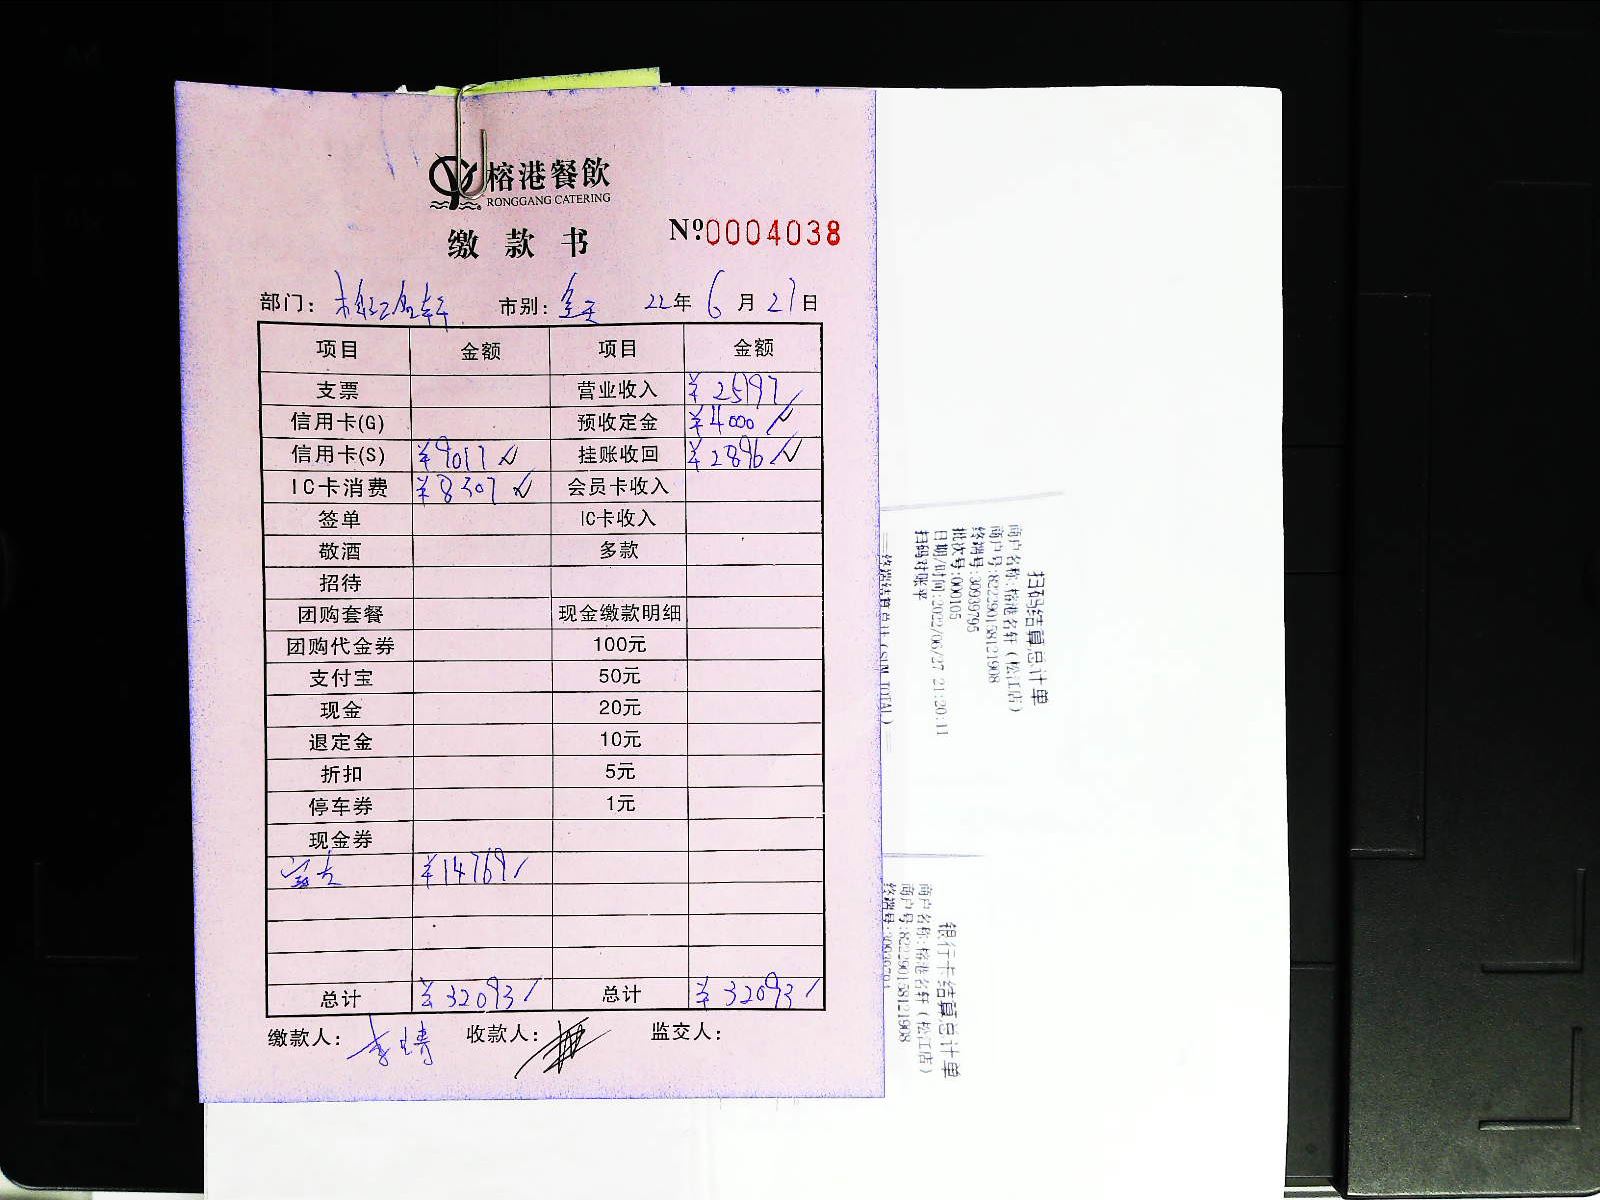 榕港餐飲
RONGGANG CATERING
缴款书 Nº0004038
部门: 松江名轩 市别: 全天 22年6月27日
项目 金额 项目 金额
支票 营业收入 ¥25197
信用卡(G) 预收定金 ¥4000
信用卡(S) ¥9017 挂账收回 ¥2896
IC卡消费 ¥8307 会员卡收入
签单 IC卡收入
敬酒 多款
招待
团购套餐 现金缴款明细
团购代金券 100元
支付宝 50元
现金 20元
退定金 10元
折扣 5元
停车券 1元
现金券
¥14769
总计 ¥32093 总计 ¥32093
缴款人: 李 收款人: 监交人:
扫码结算总计单
商户名称:榕港名轩(松江店)
商户号:822290158121908
终端号:30939795
批次号:000105
日期/时间:2022/06/27 21:20:11
扫码对账平
终端结算总计(SUM TOTAL)
银行卡结算总计单
商户名称:榕港名轩(松江店)
商户号:822290158121908